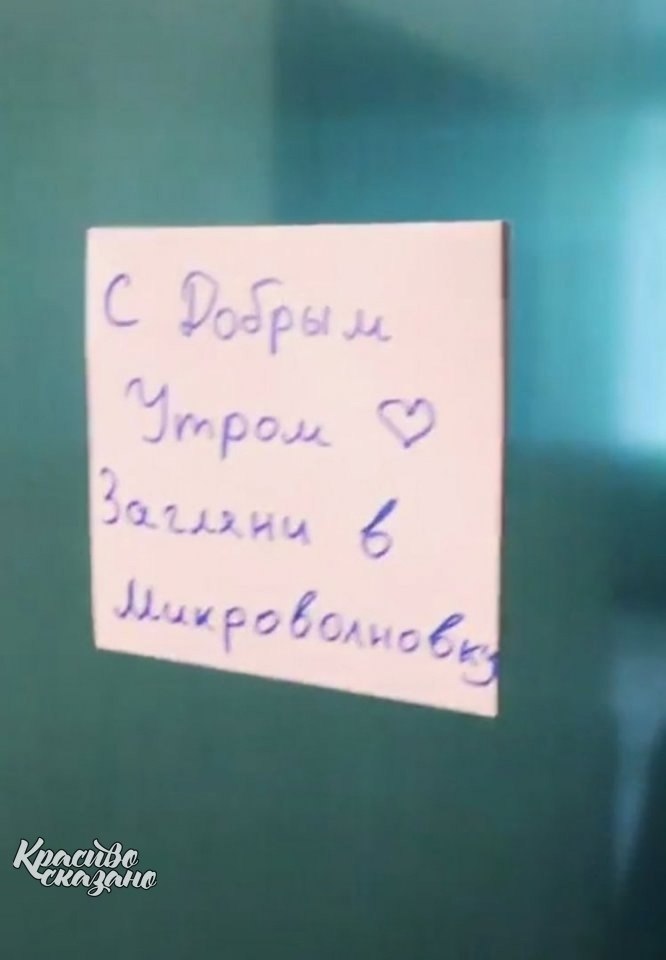 С Добрым
Утром ♡
Загляни в
Микроволновку
Красиво
сказано